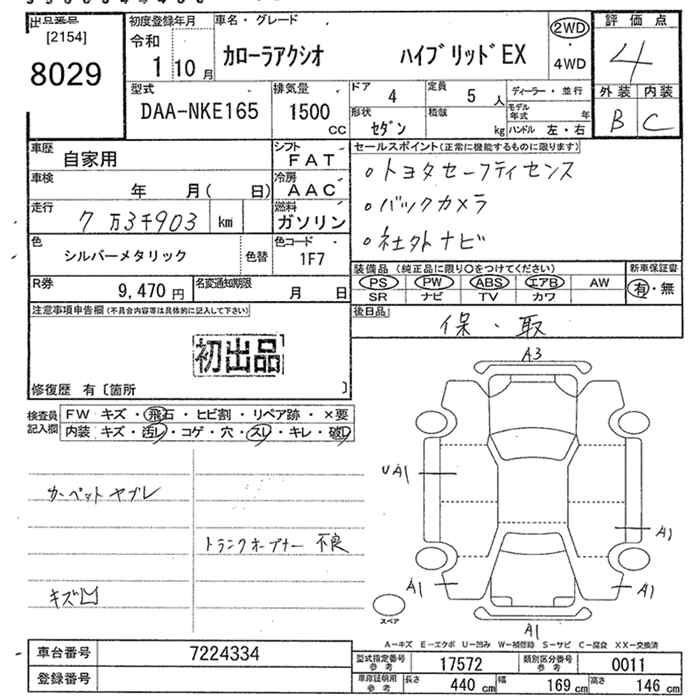 出品番号
[2154]
8029
初度登録年月
令和
1 10 月
車名・グレード
カローラアクシオ ハイブリッドEX
2WD
・
4WD
評価点
4
外装 内装
B C
型式
DAA-NKE165
排気量
1500
CC
ドア 4
定員 5 人
形状 セダン
積載 kg
ディーラー・並行
モデル年式 年
ハンドル 左・右
車歴 自家用
シフト FAT
車検 年 月( 日)
冷房 AAC
走行 7万3千903 km
燃料 ガソリン
色 シルバーメタリック 色替
色コード 1F7
R券 9,470 円
名変通知期限 月 日
セールスポイント(正常に機能するものに限ります)
・トヨタセーフティセンス
・バックカメラ
・社外ナビ
装備品 (純正品に限り○をつけてください)
PS PW ABS エアB AW
SR ナビ TV カワ
新車保証書
有・無
後日品
保・取
注意事項申告欄(不具合内容等は具体的に記入して下さい)
初出品
修復歴 有〔箇所 〕
検査員記入欄
FW キズ・飛石・ヒビ割・リペア跡・×要
内装 キズ・汚レ・コゲ・穴・スレ・キレ・破レ
カーペットヤブレ
トランクオープナー 不良
キズ凹
A3
UA1
A1
A1
A1
A1
スペア
A−キズ E−エクボ U−凹み W−補修跡 S−サビ C−腐食 XX−交換済
車台番号 7224334
登録番号
型式指定番号参考 17572
類別区分番号参考 0011
車庫証明用参考
長さ 440 cm
幅 169 cm
高さ 146 cm